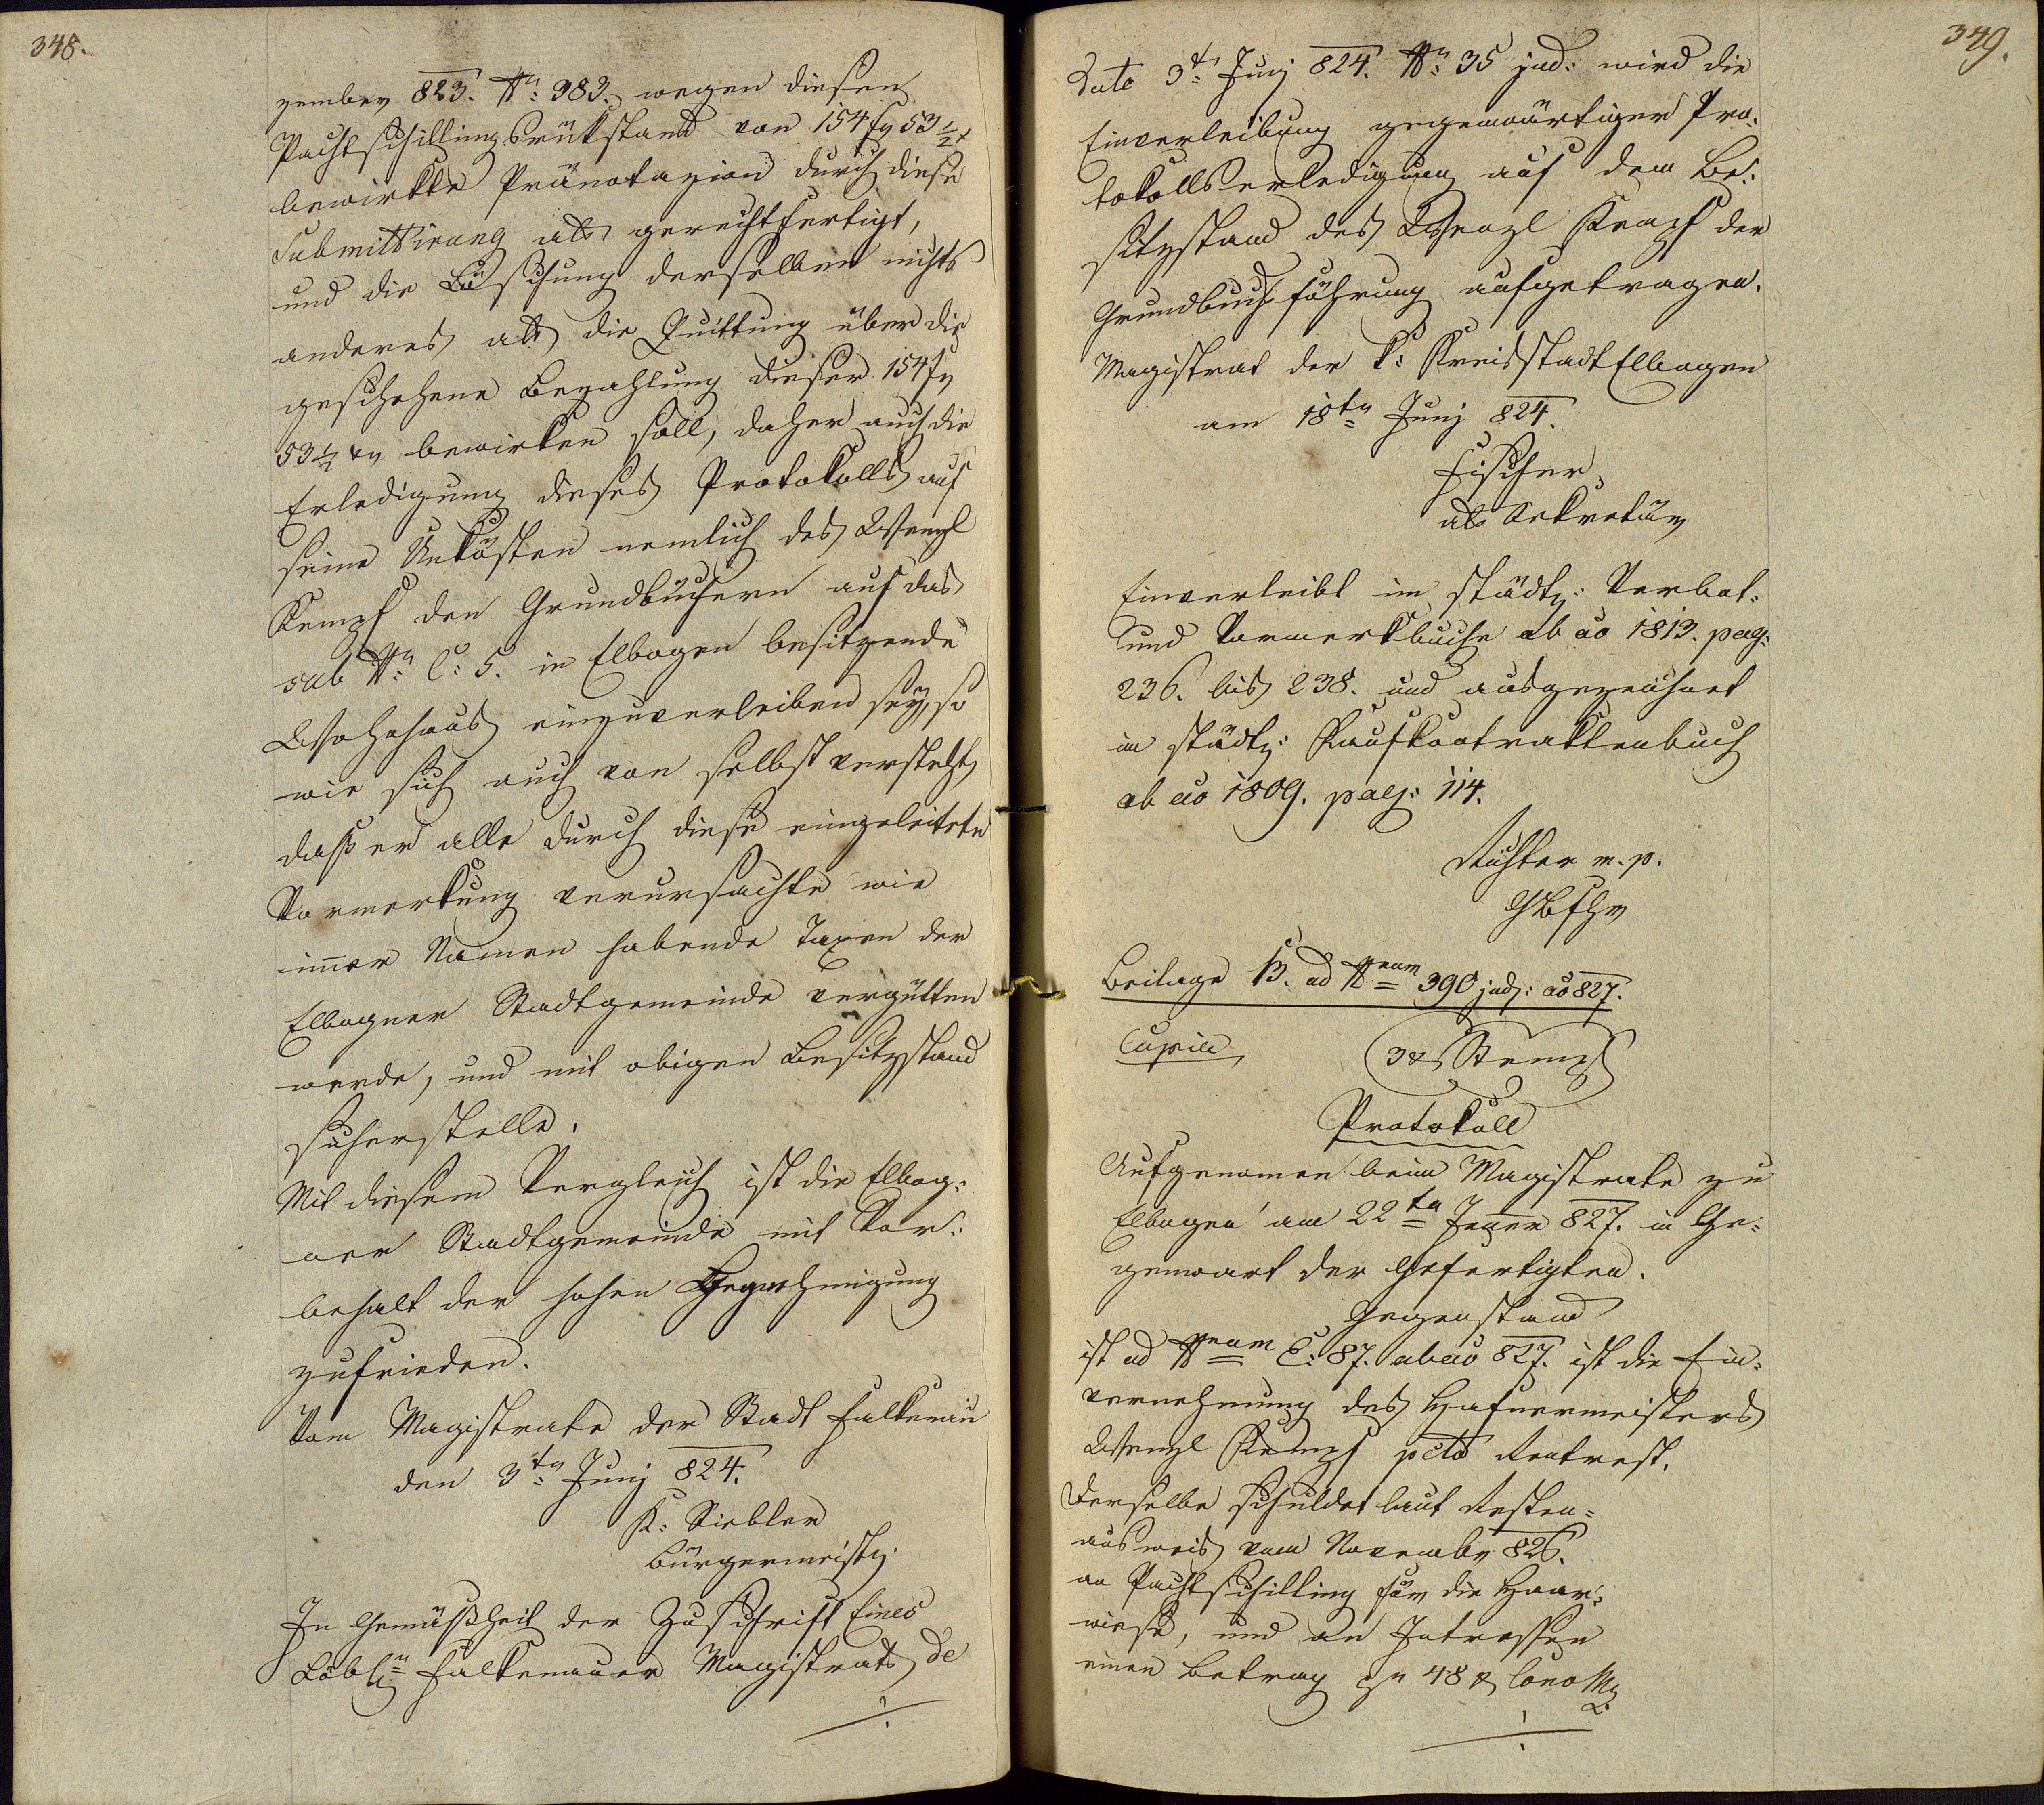 348.
zember 823. Nr: 383. wegen diesen
Pachtschillingsrükstand von 154 fr 53 ½ x
bewirkte Pränotazion durch diese
Submittirung als gerechtfertigt,
und die Löschung derselben nichts
anderes als die Quittung über die
geschehene Bezahlung dieser 154 fr
53 ½ xr bewirken soll, daher auch die
Erledigung dieses Protokolls auf
seine Unkösten nemlich des Wenzl
Kempf den Grundbüchern auf das
sub Nr: C: 5. in Elbogen besitzende
Wohnhaus einzuverleiben sey, so
wie sich auch von selbst versteht,
daß er alle durch diese eingeleitete
Vormerkung verursachte wie
imer Namen habende Taxen der
Elbogner Stadtgemeinde vergütten
werde, und mit obigen Besitzstand
sicherstelle.
Mit diesem Vergleich ist die Elbog:
ner Stadtgemeinde mit Vor:
behalt der hohen Begnehmigung
zufrieden.
Vom Magistrate der Stadt Falkenau
den 3tn Junj 824.
K: Siebler
Bürgermeistr.
In Gemäßheit der Zuschrift Eines
Löbln Falkenauer Magistrats de
349.
Dato 3t Junj 824. Nr: 35 jud: wird die
Einverleibung gegenwärtiger Pro:
tokollserledigung auf dem Be:
sitzstand des Wenzl Kempf der
Grundbuchsführung aufgetragen.
Magistrat der k: Kreisstadt Elbogen
am 18tn Junj 824.
Fischer
als Sekretär
Einverleibt im städtn: Verbot:
und Vormerkbuche ab ao 1813. pag:
236. bis 238. und ausgezeichnet
im städtn: Kaufkontraktenbuch
ab ao 1809. pag: 114.
Richter m. p.
GBfhr
Beilage B. ad Neram 390 jud: ao 827.
Copia
3 x Stempf
Protokoll
Aufgenomen beim Magistrate zu
Elbogen am 22tn Jener 827. in Ge:
genwart der Gefertigten.
Gegenstand
ist ad Neram C: 87. ab ao 827. ist die Ein:
vernehmung des Hafnermeisters
Wenzl Kempf pcto Rentrest.
Derselbe schuldet laut Resten:
ausweis vom November 826.
an Pachtschilling für die Haar:
wiese, und an Intressen
einen Betrag pr 48 x Cono Mz